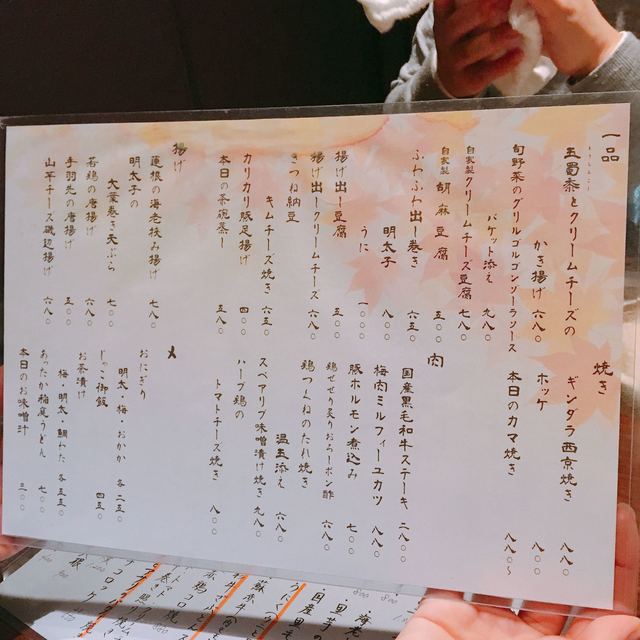 一品
五蜀黍とクリームチーズの
とうもろこし
かき揚げ 六八〇
旬野菜のグリルゴルゴンゾーラソース
バケット添え 九八〇
自家製クリームチーズ豆腐 七八〇
自家製 胡麻豆腐 五〇〇
ふわふわ出し巻き 六五〇
明太子 八〇〇
うに 一〇〇〇
揚げ出し豆腐 五〇〇
揚げ出しクリームチーズ 六八〇
きつね納豆
キムチチーズ焼き 六五〇
カリカリ豚足揚げ 四〇〇
本日の茶碗蒸し 五八〇
揚げ
蓮根の海老挟み揚げ 七八〇
明太子の
大葉巻き天ぷら 七〇〇
若鶏の唐揚げ 六八〇
手羽先の唐揚げ 五〇〇
山芋チーズ磯辺揚げ 六八〇
焼き
ギンダラ西京焼き 八八〇
ホッケ 八〇〇
本日のカマ焼き 八八〇〜
肉
国産黒毛和牛ステーキ 二八〇〇
梅肉ミルフィーユカツ 八八〇
豚ホルモン煮込み 七〇〇
鶏せせり炙りおろしポン酢 六八〇
鶏つくねのたれ焼き
温玉添え 六八〇
スペアリブ味噌漬け焼き 九八〇
ハーブ鶏の
トマトチーズ焼き 八〇〇
〆
おにぎり
明太・梅・おかか 各二五〇
じゃこ御飯 四五〇
お茶漬け
梅・明太・鯛わた 各五五〇
あったか稲庭うどん 七〇〇
本日のお味噌汁 三〇〇